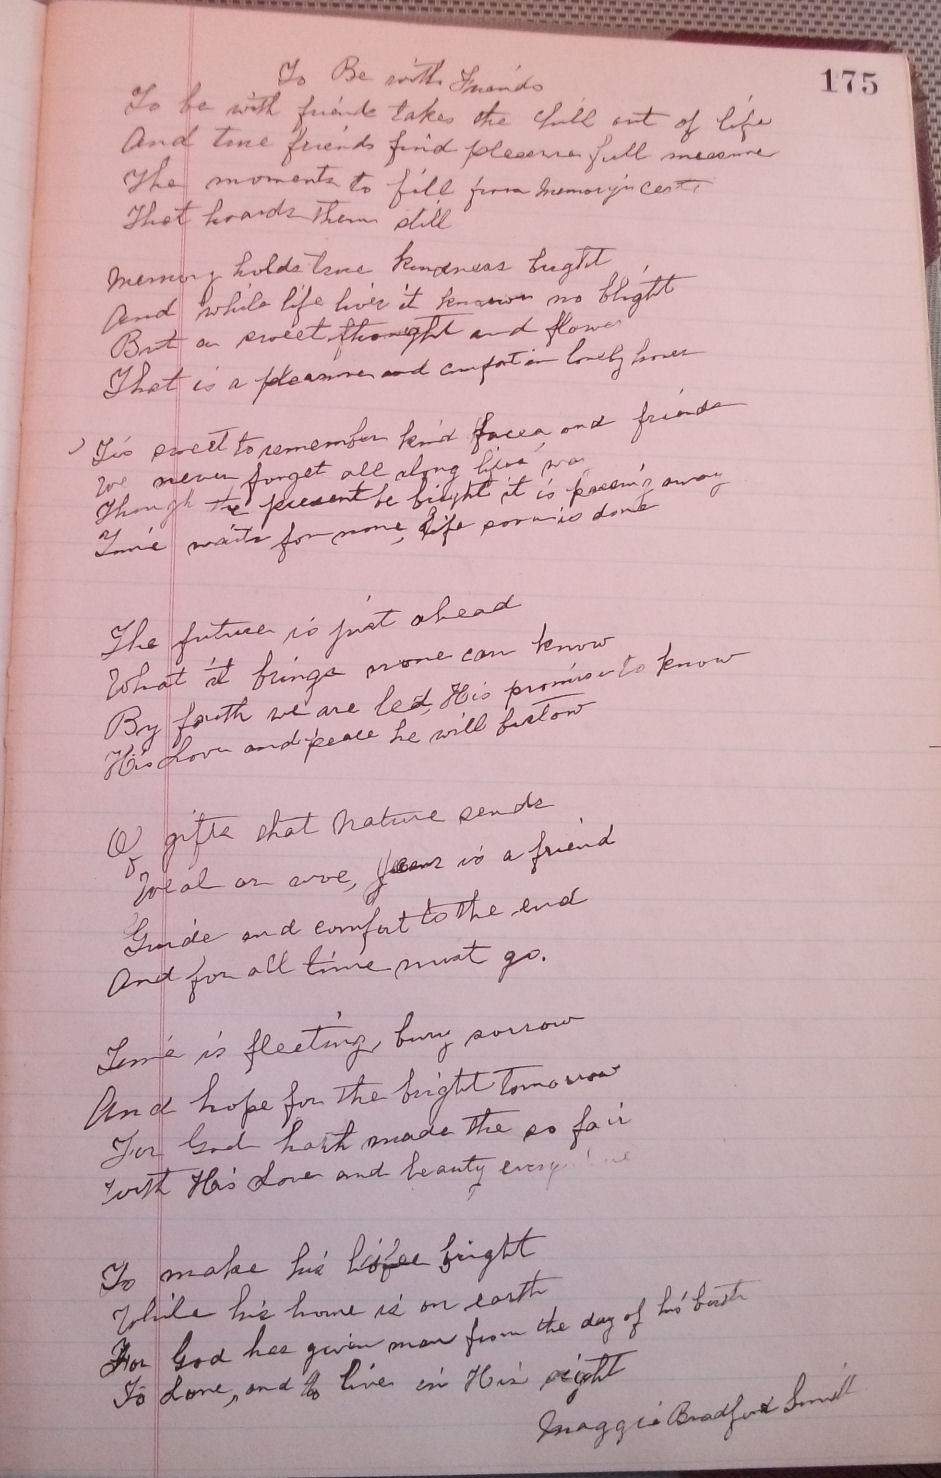 175
To Be with Friends
To be with friends takes the chill out of life
And true friends find pleasure full measure
The moments to fill from Memory's cest
That hoards them still
Memory holds true kindness bright
And while life lives it knows no blight
But a sweet thought and flower
That is a pleasure and comfort in lonely hours
'Tis sweet to remember kind faces, and friends
We never forget all along lifes' way
Though the present be bright it is passing away
Time waits for none, life soon is done
The future is just ahead
What it brings none can know
By faith we are led, His promise to know
His Love and peace he will bestow
Of gifts that nature sends
Weal or woe, is a friend
Guide and comfort to the end
And for all time must go.
Time is fleeting, bury sorrow
And hope for the bright tomorrow
For God hath made the so fair
With His Love and beauty every
To make his life bright
While his home is on earth
For God has given man from the day of his birth
To Love, and to live in His sight
Maggie Bradford Smith